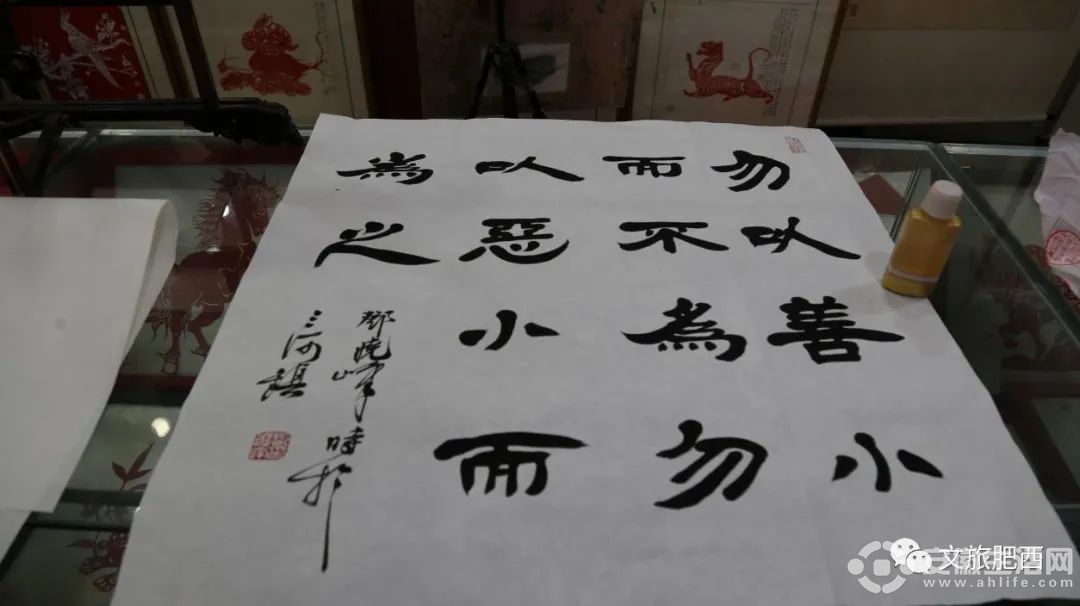 勿以善小
而不為勿
以惡小而
為之
曉峰時於
三河鎮
文旅肥西
安徽生活网
www.ahlife.com